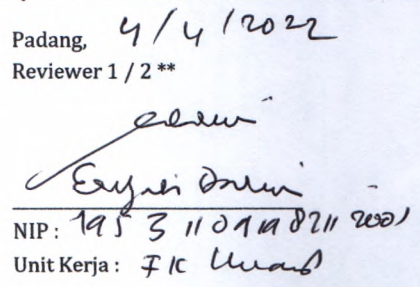 Padang, 4/4/2022
Reviewer 1 / 2 **
NIP : 195311091982112001
Unit Kerja : FK Unand